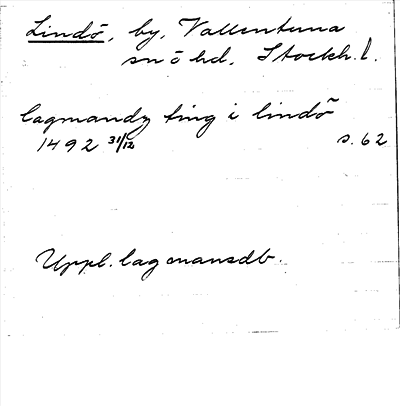 Lindö, by, Vallentuna
sn ō hd, Stockh. l.
lagmandz ting i lindō̃
1492 31/12 s. 62
Uppl. lagmansdb.